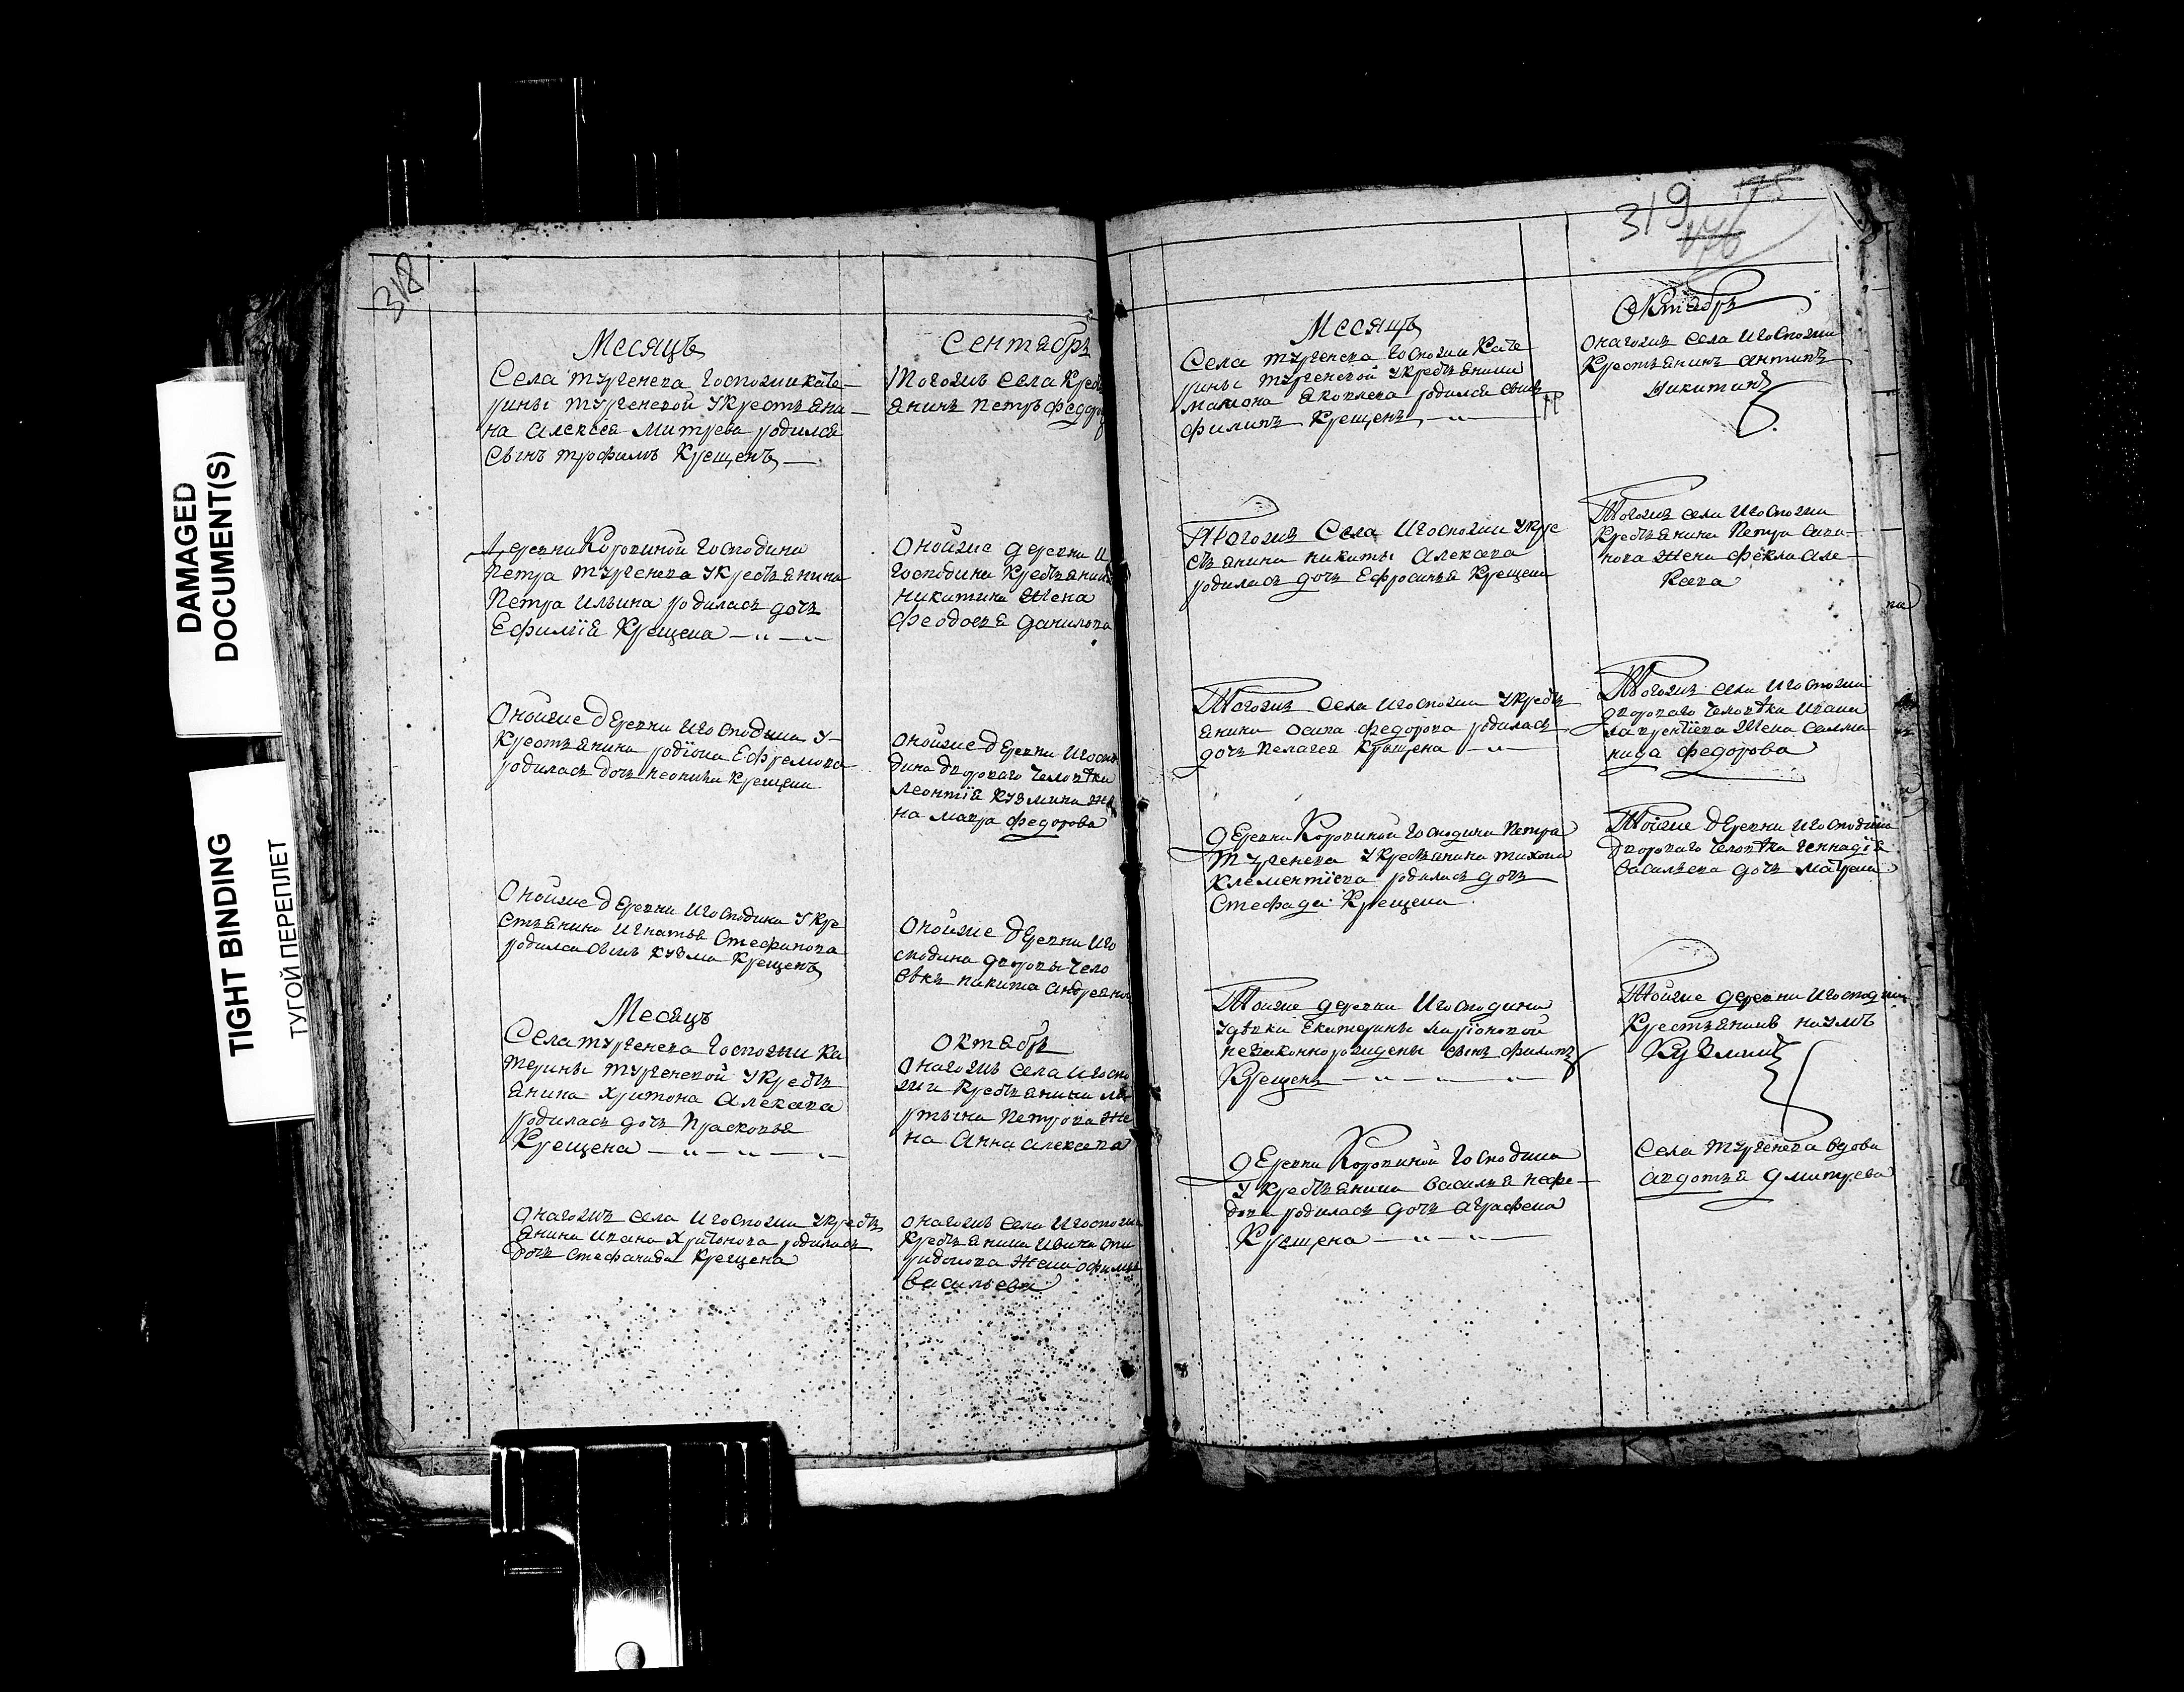 DAMAGED
DOCUMENT(S)
TIGHT BINDING
ТУГОЙ ПЕРЕПЛЕТ
318
Месяцъ
Села тургенева госпожи кате-
рины тургеневой у крестьяни-
на алексея митрева родился
сынъ трофимъ крещенъ
деревни Коровиной господина
петра тургенева у кресьянина
петра ильина родилась дочь
Ефимїя крещена
Оной же деревни и господина у
крестьянина родїона Ефремова
родилась дочь неонила крещена
Оной же деревни и господина у кре
стьянина игнатья Стефанова
родился сынъ кузма крещенъ
Месяцъ
Села тургенева госпожи ка
терины тургеневой у кресть
янина харитона алексеева
родилась дочь Прасковья
крещена
Онагожъ села и госпожи у кресть
янина ивана харитонова родилась
дочь стефанида крещена
Сентябрь
Тогожъ села крест
янинъ петръ федоро
Оной же деревни и
господина крестьянина
никитина жена
феодосья данилова
Оной же деревни и госпо
дина двороваго человѣка
леонтїя кузмина же
на мавра федорова
Оной же деревни и го
сподина дворовы чело
векъ никита андреянов
октябрь
Онагожъ села и госпо
жи крестьянина ма
ртына петрова же
на анна алексеева
онагожъ села и госпожи
крестьянина ивана спи
ридонова жена офимья
васильева
319
175
176
Месяцъ
Села тургенева госпожи кате
рины тургеневой у крестьянина
мамона яковлева родился сынъ
филипъ крещенъ
Тогожъ Села и госпожи у кре
стьянина никиты алексеева
родилась дочь Ефросинья крещена
Тогожъ села и госпожи у кресть
янина осипа федорова родилась
дочь пелагея крещена
деревни Коровиной господина петра
тургенева у кресьянина тихона
клементїева родилась дочь
Стефанида крещена
Той же деревни и господина
у девки екатерины ларїоновой
незаконнорожденны сынъ филипъ
крещенъ
деревни Коровиной господина
у кресьянина василья нефе-
дова родилась дочь аграфена
крещена
Октябрь
онагожъ села и госпожи
крестьянинъ антипъ
никитинъ
Тогожъ села и госпожи
кресьянина петра сави-
нова жена фёкла але-
ксеева
Тогожъ села и госпожи
двороваго человѣка ивана
лаврентїева жена соломо
нида федорова
Той же деревни и господина
двороваго человѣка геннадїя
васильева дочь матрена
Той же деревни и господина
крестьянинъ наумъ
кузминъ
села тургенева вдова
авдотья дмитрева